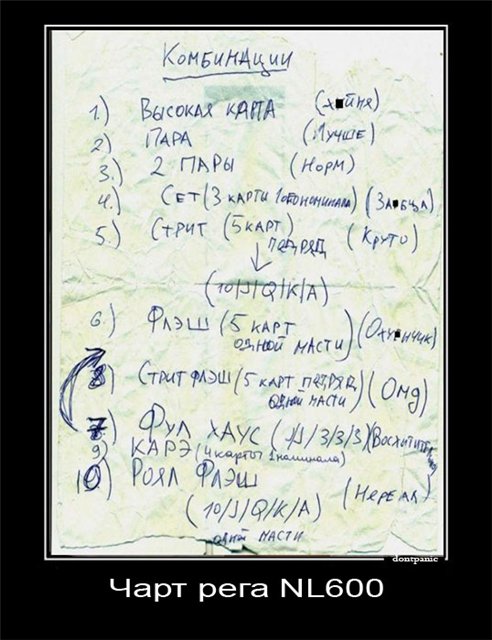 Комбинации
1.) Высокая карта (х■йня)
2) Пара (Лучше)
3.) 2 пары (норм)
4.) Сет (3 карты 1ого номинала) (за■бца)
5.) Стрит (5 карт) подряд (Круто)
(10/J/Q/K/A)
6.) Флэш (5 карт одной масти) (Оху■нчик)
8) Стрит флэш (5 карт подряд одной масти) (Омд)
7) Фул хаус (J/J/3/3/3) (Восхитит
9) Карэ (4 карты 1 номинала)
10) Роял Флэш (Нереал)
(10/J/Q/K/A)
одной масти
dontpanic
Чарт рега NL600